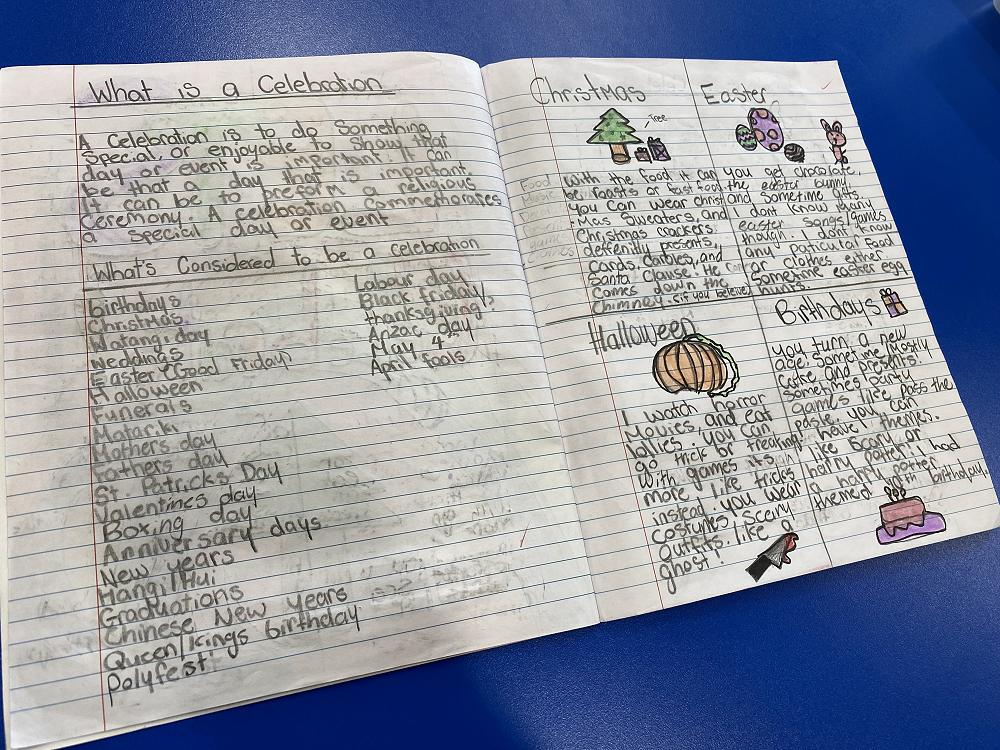 What is a Celebration
A Celebration is to do Something
Special, or enjoyable to show that
day or event is important. It can
be that a day that is important.
It can be to preform a religious
Ceremony. A celebration commemorates
a special day or event
What's Considered to be a celebration
Birthdays
Christmas
Watangi day
Weddings
Easter (Good Friday)
Halloween
Funerals
Matariki
Mothers day
Fathers day
St. Patricks Day
Valentines day
Boxing day
Anniversary days
New years
Hangi/Hui
Graduations
Chinese New years
Queen/kings birthday
Polyfest
Labour day
Black friday/
thanksgiving?
Anzac day
May 4th
April fools
Christmas
Tree
Food
With the food it can
be roasts or fast food.
You can wear christ
-Mas Sweaters, and
Christmas crackers.
deffenitly presents,
cards, baubles, and
Santa Clause. He
comes down the
Chimney. (if you believe)
Easter
You get chocolate,
the easter bunny.
and sometime gifts
I dont know many
easter songs/games
though. I dont know
any paticular food
or clothes either.
Sometime easter egg
hunts.
Halloween
I watch horror
Movies, and eat
lollies. you can
go trick or treating!
With games its
more like tricks
instead. you wear
costumes scary
outfits. like a
ghost!
Birthdays
you turn a new
age. Sometime Mostly
Cake, and presents.
Sometimes party
games like Pass the
pasle. you can
have themes.
like Scary, or
harry potter. I had
a harry potter
themed 10th birthday.